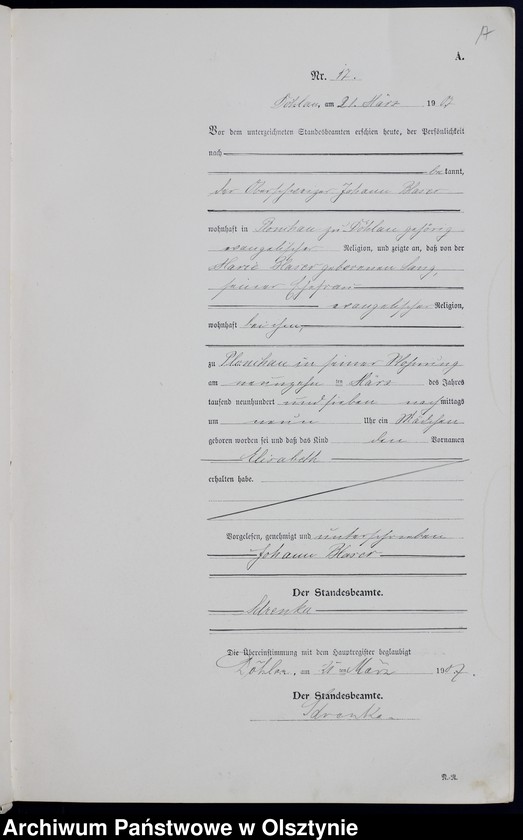 A
A.
Nr. 17.
Döhlau, am 21. März 1907
Vor dem unterzeichneten Standesbeamten erschien heute, der Persönlichkeit
nach
bekannt,
der Johann
wohnhaft in zu Döhlau gehörig
evangelischer Religion, und zeigte an, daß von der
Marie geborenen Lang,
seiner Ehefrau
evangelischer Religion,
wohnhaft bei ihm,
zu in seiner Wohnung
am neunzehn ten März des Jahres
tausend neunhundert und sieben nachmittags
um neun Uhr ein Mädchen
geboren worden sei und daß das Kind den Vornamen
Elisabeth
erhalten habe.
Vorgelesen, genehmigt und unterschrieben
Johann
Der Standesbeamte.
Die Übereinstimmung mit dem Hauptregister beglaubigt
Döhlau, am März 1907.
Der Standesbeamte.
Archiwum Państwowe w Olsztynie